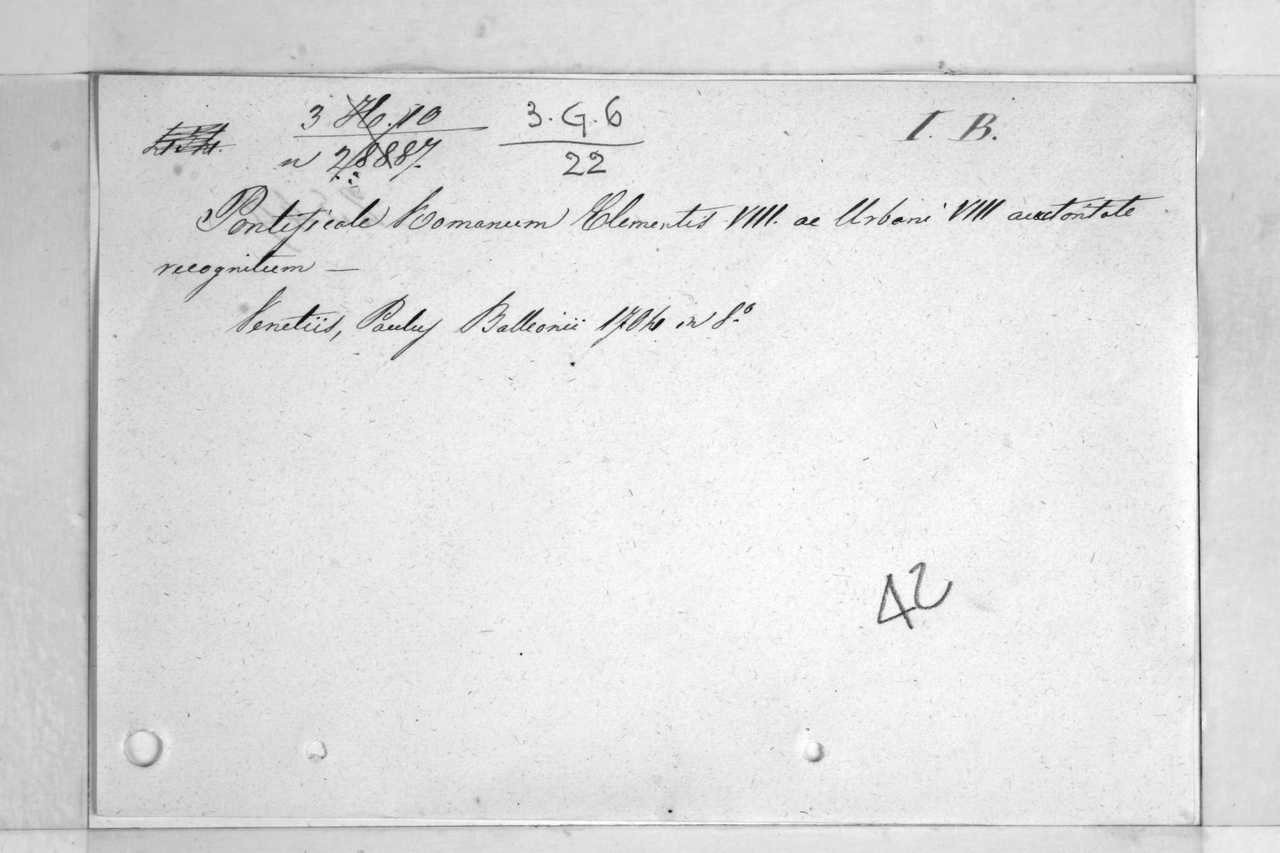 3 H. 10 3. G. 6 I. B.
n 28887. 22
Pontificale Romanum Clementis VIII. ac Urbani VIII auctoritate
recognitum —
Venetiis, Paulus Balleonii 1704 in 8.º
42